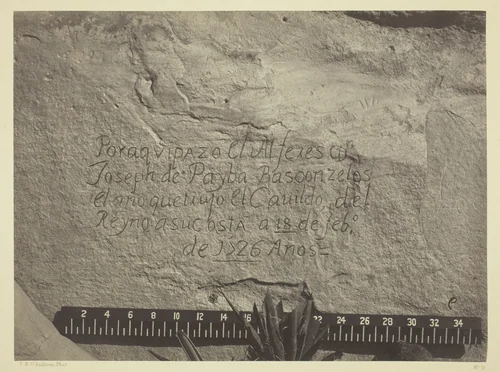 Por aqui pazo el Alferes dn
Joseph de Payba Basconzelos
el año que tujo el Cauildo, del
Reyno a su costa a 18 de feb.º
de 1726 Años
2 4 6 8 10 12 14 16 22 24 26 28 30 32 34